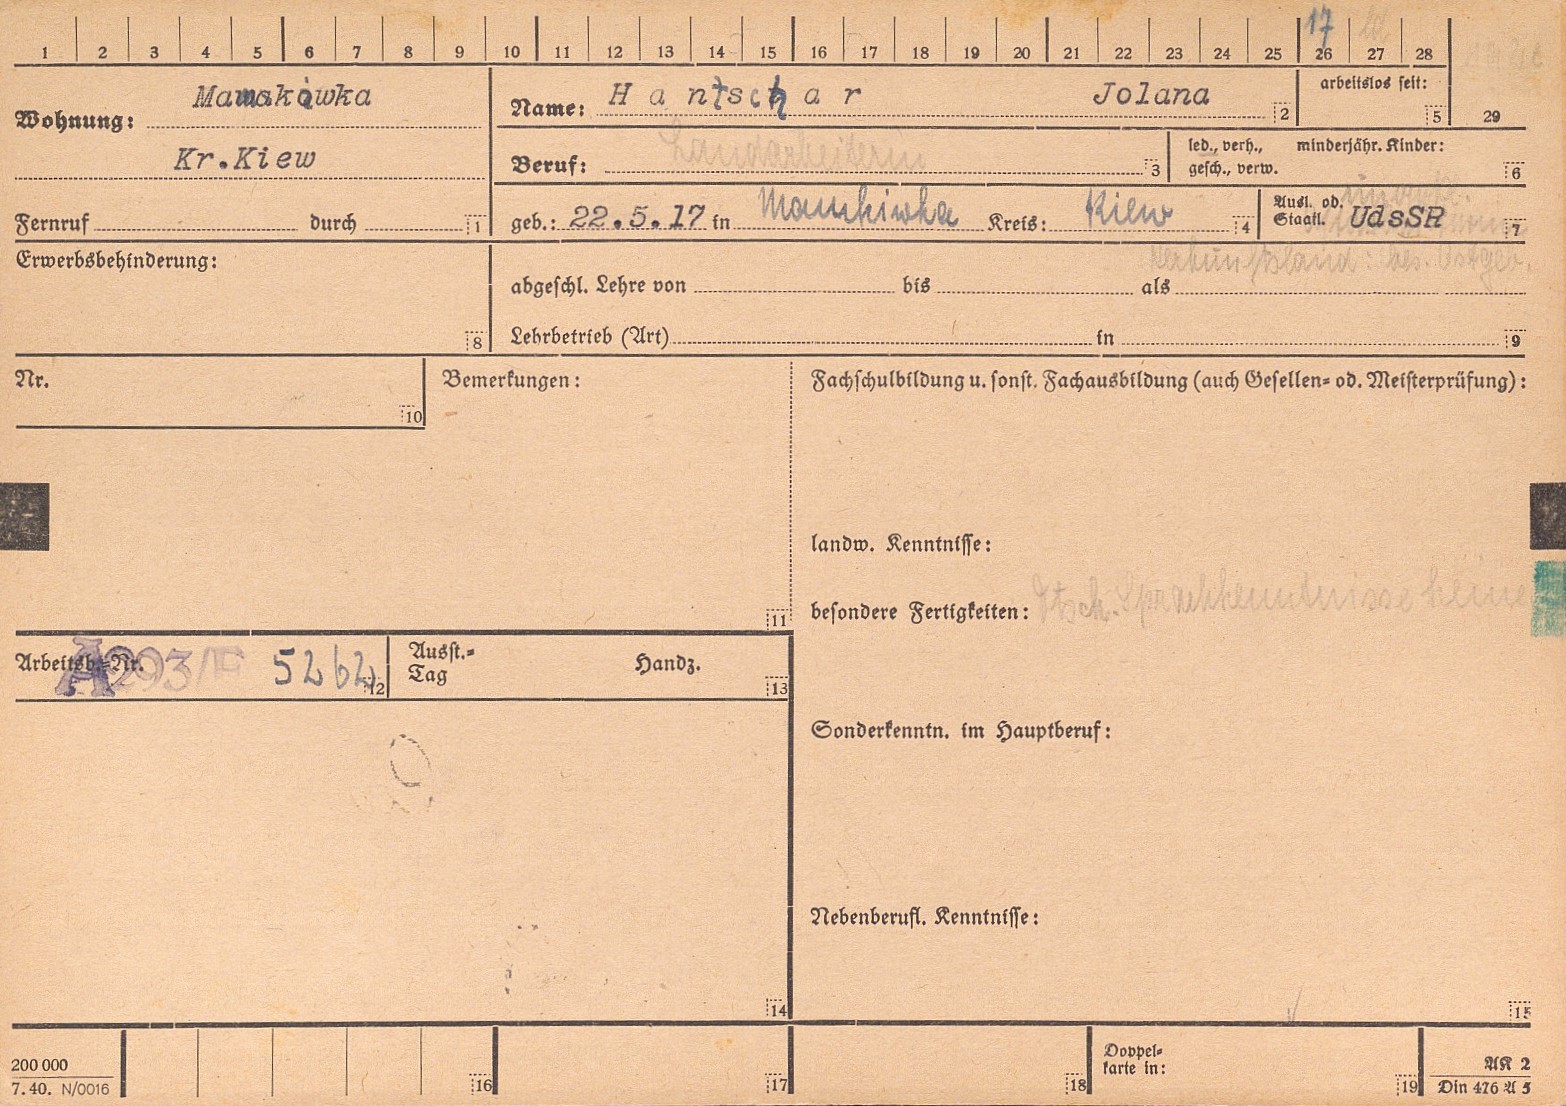 1 2 3 4 5 6 7 8 9 10 11 12 13 14 15 16 17 18 19 20 21 22 23 24 25 26 27 28
17
Wohnung:
Kr.Kiew
Fernruf durch 1
Name: Hantschar Jolana 2
arbeitslos seit: 5
29
Beruf: Landarbeiterin 3
led., verh., gesch., verw.
minderjähr. Kinder: 6
geb.: 22.5.17 in Mankiwka Kreis: Kiew 4
Ausl. od. Staatl. UdsSR 7
Herkunftsland: bes. Ostgeb.
Erwerbsbehinderung: 8
abgeschl. Lehre von bis als
Lehrbetrieb (Art) in 9
Nr. 10
Bemerkungen: 11
Fachschulbildung u. sonst. Fachausbildung (auch Gesellen= od. Meisterprüfung):
landw. Kenntnisse:
besondere Fertigkeiten: Dtsch. Sprachkenntnisse keine
Arbeitsb.=Nr. A293/F 5262 12
Ausst.= Tag Handz. 13
Sonderkenntn. im Hauptberuf:
Nebenberufl. Kenntnisse:
14
15
200 000
7.40. N/0016
16
17
18
Doppel=
karte in: 19
AK 2
Din 476 A 5